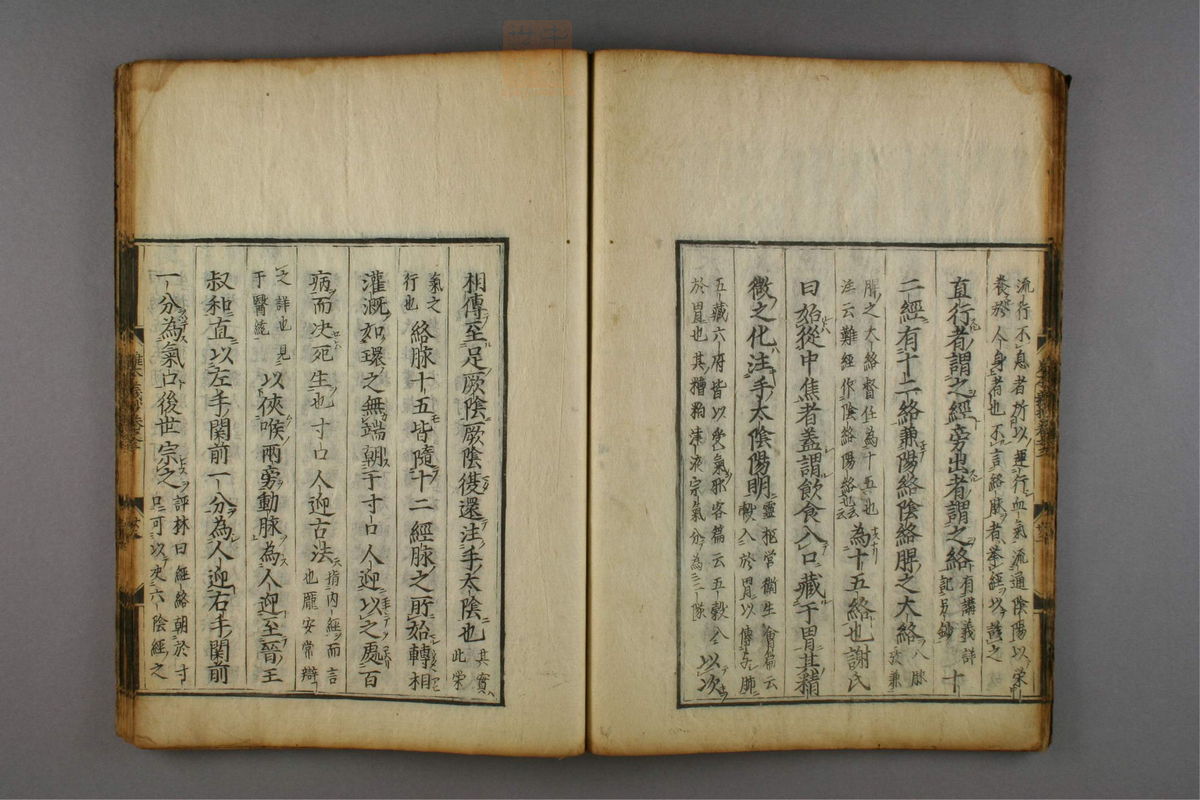 流行不息者所以運行血氣流通陰陽以栄
養於人身者也不言絡脉者挙經以該之
直行者謂之經旁出者謂之絡有講義詳記另鈔十
二經有十二絡兼陽絡陰絡脾之大絡八脉兼
脾之大絡督任為十五也注云難經作陰絡陽絡也云為十五絡也謝氏
曰始從中焦者蓋謂飲食入口藏于胃其精
微之化注手太陰陽明靈枢営衛生會篇云穀入於胃以傳與肺
五藏六府皆以受氣邪客篇云五穀入於胃也其糟粕津液宗氣分為三隊以次
相傳至足厥陰厥陰復還注手太陰也其實此栄
氣之行也絡脉十五皆隨十二經脉之所始轉相
灌漑如環之無端朝于寸口人迎以之處百
病而決死生也寸口人迎古法指内經而言也龐安常辯
之詳也見于醫説以俠喉兩旁動脉為人迎至晉王
叔和直以左手関前一分為人迎右手関前
一分為氣口後世宗之評林曰經絡朝於寸只可以决六陰經之